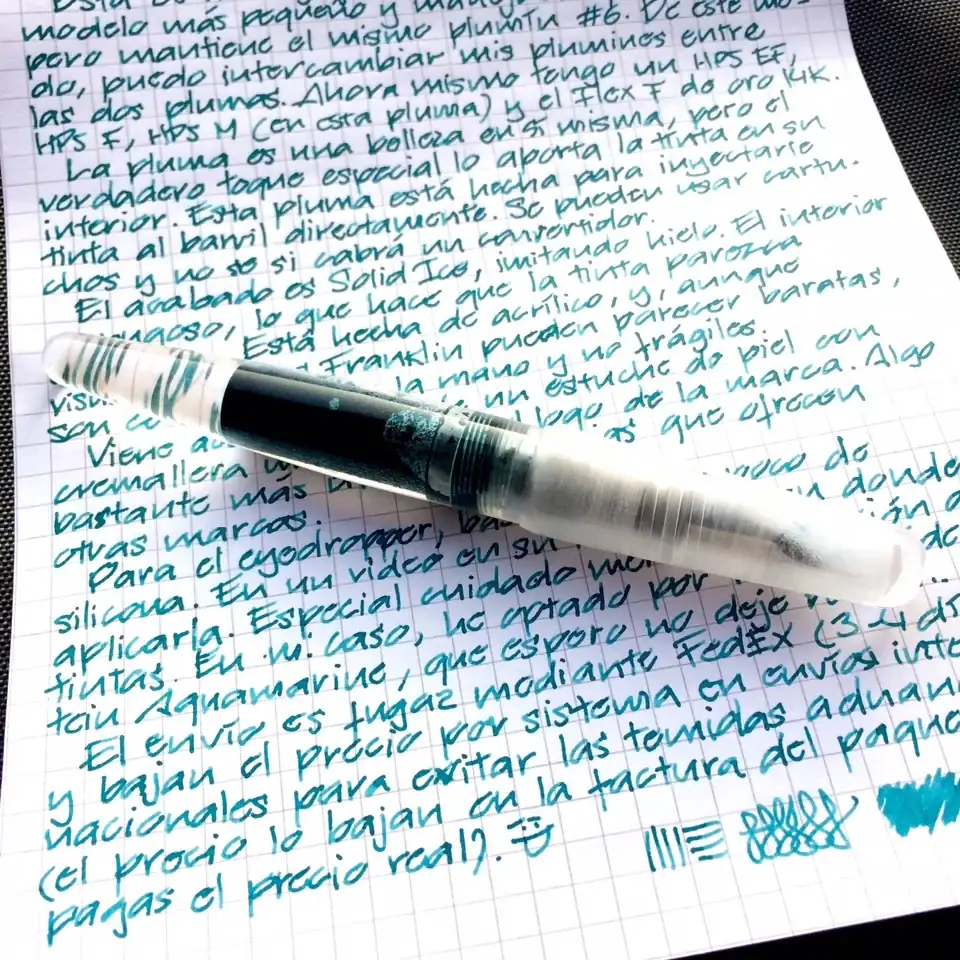 modelo más pequeño y
pero mantiene el mismo plumín #6. De este mo-
do, puedo intercambiar mis plumines entre
las dos plumas. Ahora mismo tengo un HPS EF,
HPS F, HPS M (en esta pluma) y el Flex F de oro 14K.
La pluma es una belleza en sí misma, pero el
verdadero toque especial lo aporta la tinta en su
interior. Esta pluma está hecha para inyectarle
tinta al barril directamente. Se pueden usar cartu-
chos y no se si cabrá un convertidor.
El acabado es Solid Ice, imitando hielo. El interior
lo que hace que la tinta parezca
Está hecha de acrílico, y, aunque
Franklin pueden parecer baratas,
la mano y no frágiles.
son un estuche de piel con
Viene logo de la marca. Algo
cremallera que ofrecen
bastante más poco de
otras marcas. donde
Para el eyedropper,
silicona. En un video en su
aplicarla. Especial cuidado
tintas. En mi caso, he optado por
Aquamarine, que espero no deje
El envío es fugaz mediante FedEx (3-4
y bajan el precio por sistema en envíos inte
nacionales para evitar las temidas aduan
(el precio lo bajan en la factura del paque
pagas el precio real). :)